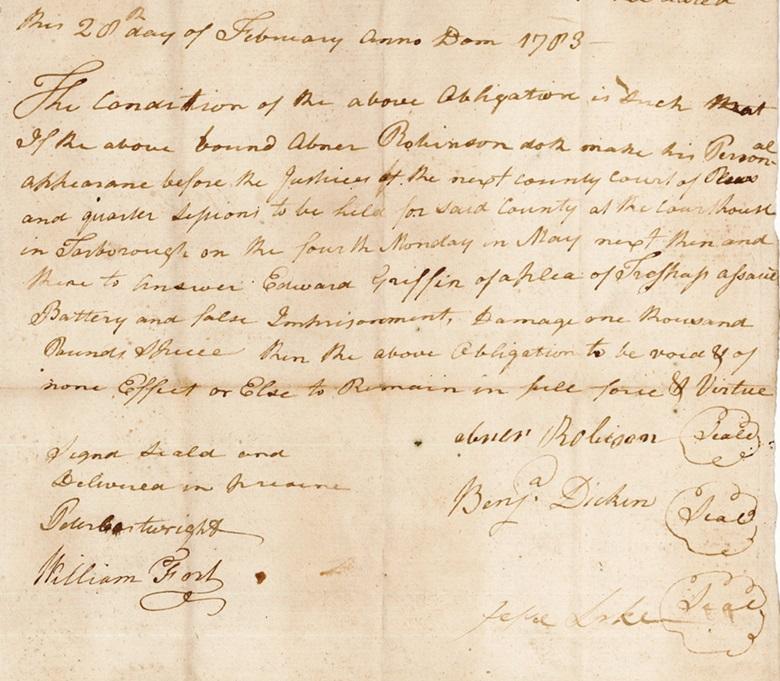 this 28th day of February Anno Dom 1783
The Condition of the above Obligation is Such that
If the above bound Abner Robinson doth make his Personal
appearance before the Justices of the next County Court of Pleas
and quarter Sessions to be held for said County at the Courthouse
in Tarborough on the fourth Monday in May next then and
there to Answer Edward Griffin of a plea of Trespass assault
Battery and false Imprisonment, Damage one thousand
Pounds Specie then the above Obligation to be void & of
none Effect or Else to Remain in full force & Virtue
Signd Seald and
Delivered in
Peter Cartwright
William Fort
abner Robison Seald
Benja. Dicken Seald
Jesse Seal